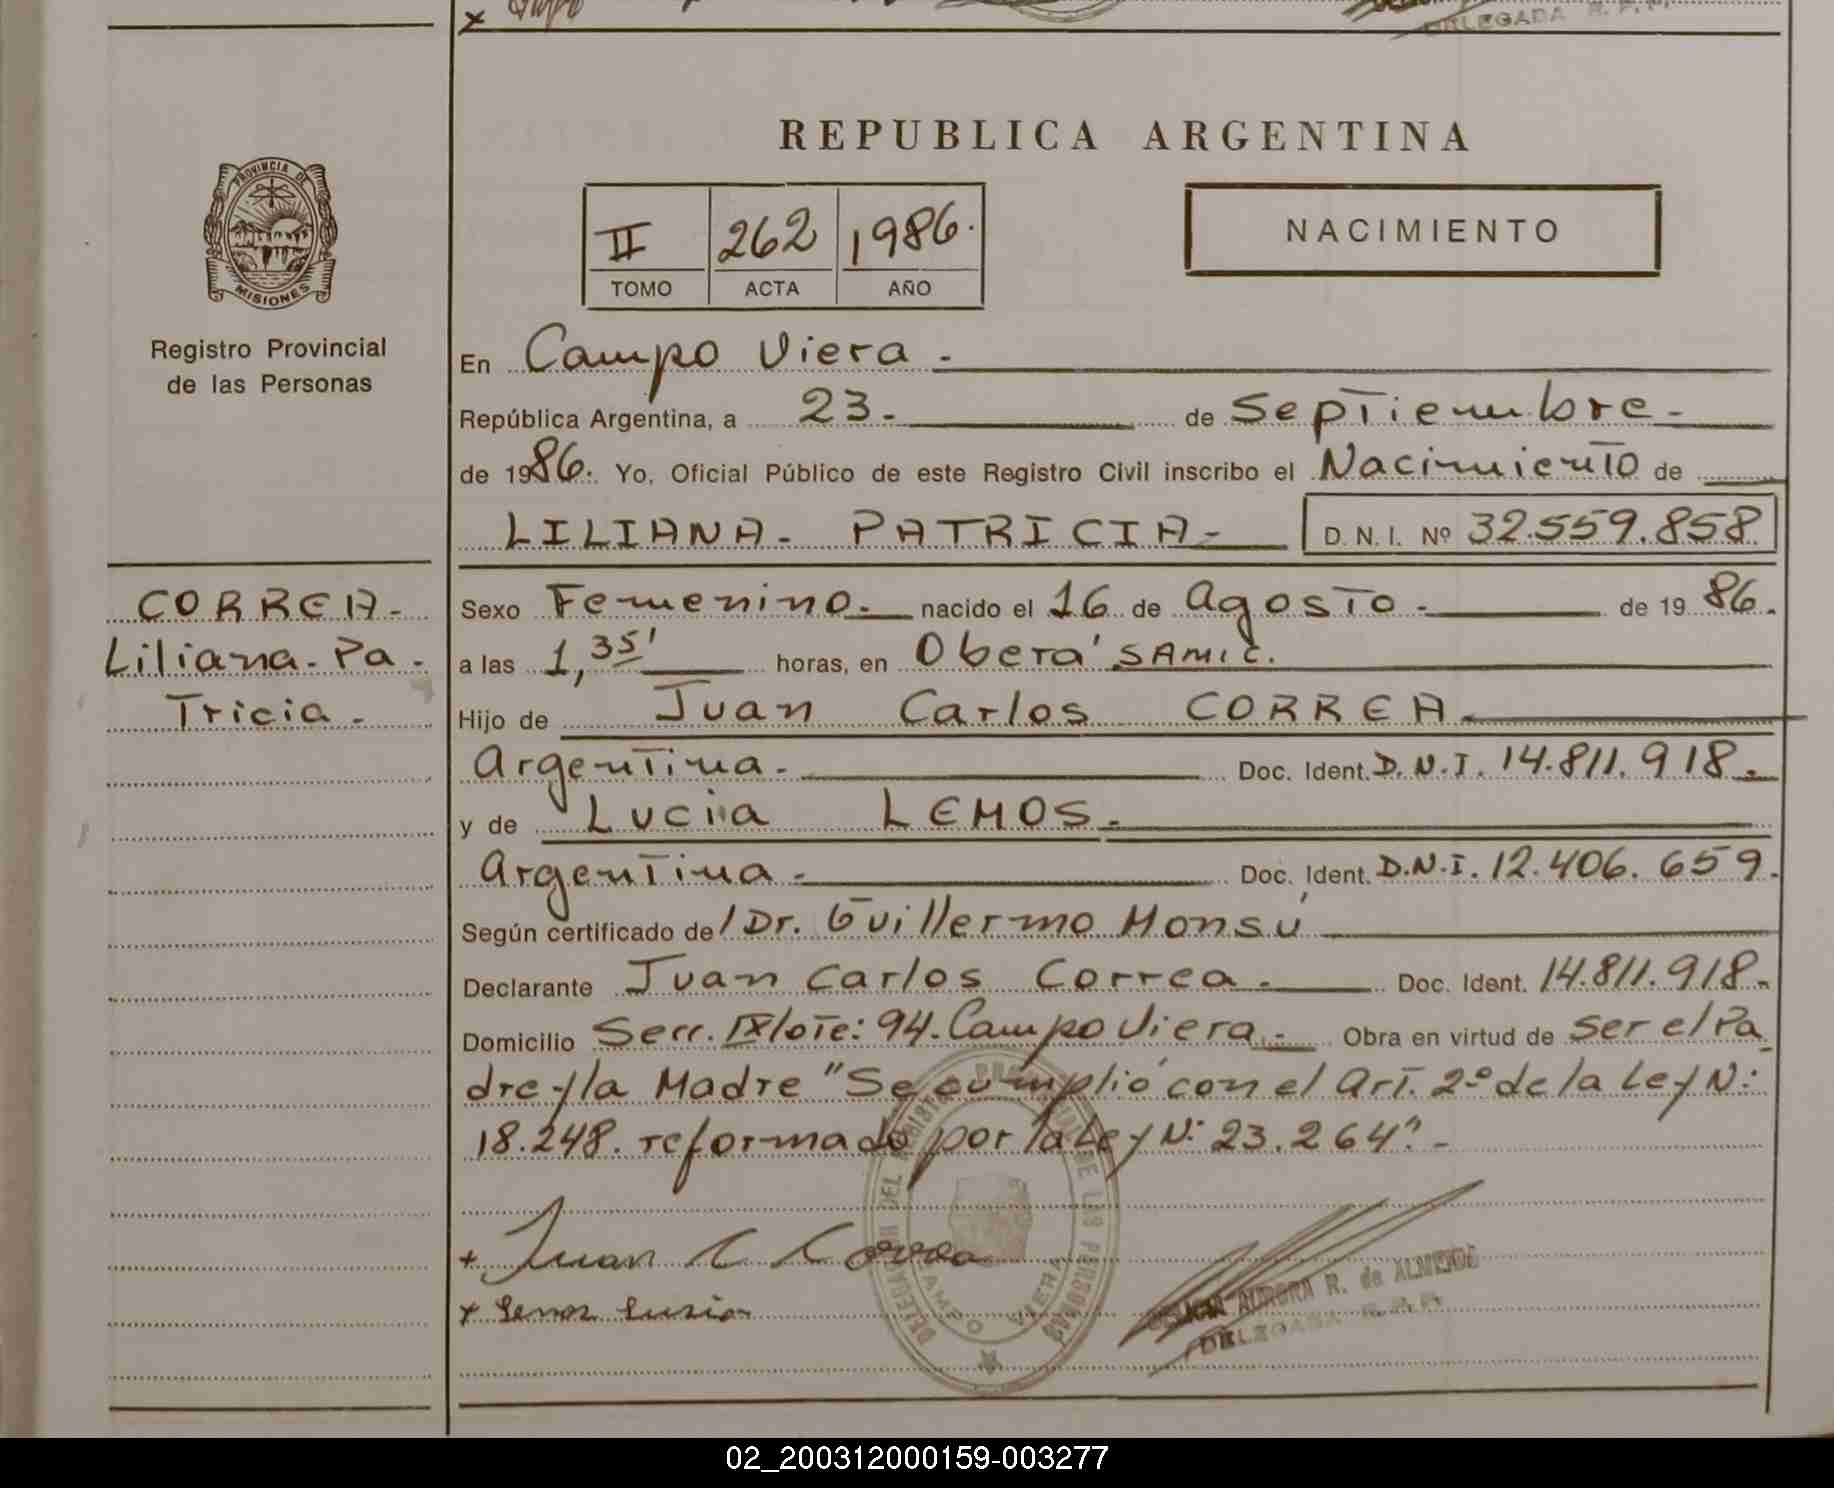 DELEGADA R. P. P.
REPUBLICA ARGENTINA
PROVINCIA DE
MISIONES
Registro Provincial
de las Personas
II 262 1986.
TOMO ACTA AÑO
NACIMIENTO
En Campo Viera -
República Argentina, a 23. de Septiembre -
de 1986. Yo, Oficial Público de este Registro Civil inscribo el Nacimiento de
LILIANA - PATRICIA - D. N. I. Nº 32.559.858
CORREA -
Liliana - Pa -
Tricia -
Sexo Femenino. nacido el 16 de Agosto - de 1986.
a las 1,35' horas, en Oberá SAMIC.
Hijo de Juan Carlos CORREA
Argentina - Doc. Ident. D.N.I. 14.811.918 -
y de Lucia LEMOS -
Argentina - Doc. Ident. D.N.I. 12.406.659.
Según certificado de / Dr. Guillermo Monsú
Declarante Juan Carlos Correa - Doc. Ident. 14.811.918 -
Domicilio Secc. IX lote: 94. Campo Viera - Obra en virtud de ser el Pa
dre y la Madre "Se cumplió con el Art. 2º de la Ley N:
18.248. reformado por la Ley Nº 23.264". -
+ Juan C Correa
+ Lemos Lucia
DEL REGISTRO PROVINCIAL DE LAS PERSONAS
CAMPO VIERA
AURORA R. de ALMEIDA
DELEGADA R. P. P.
02_200312000159-003277